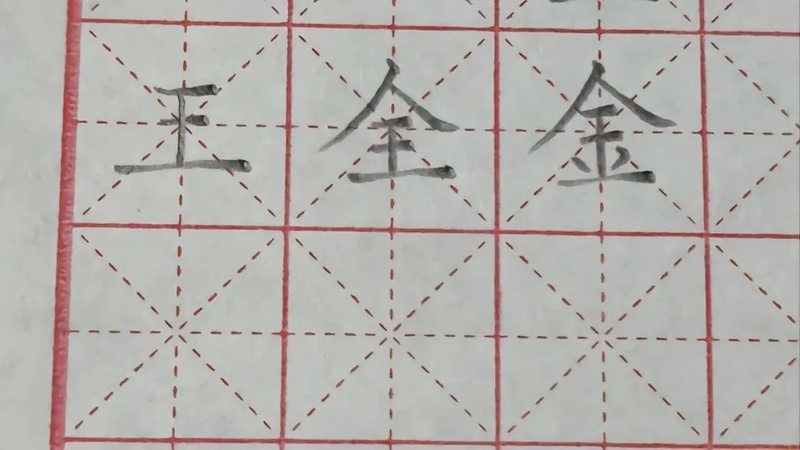 王全金